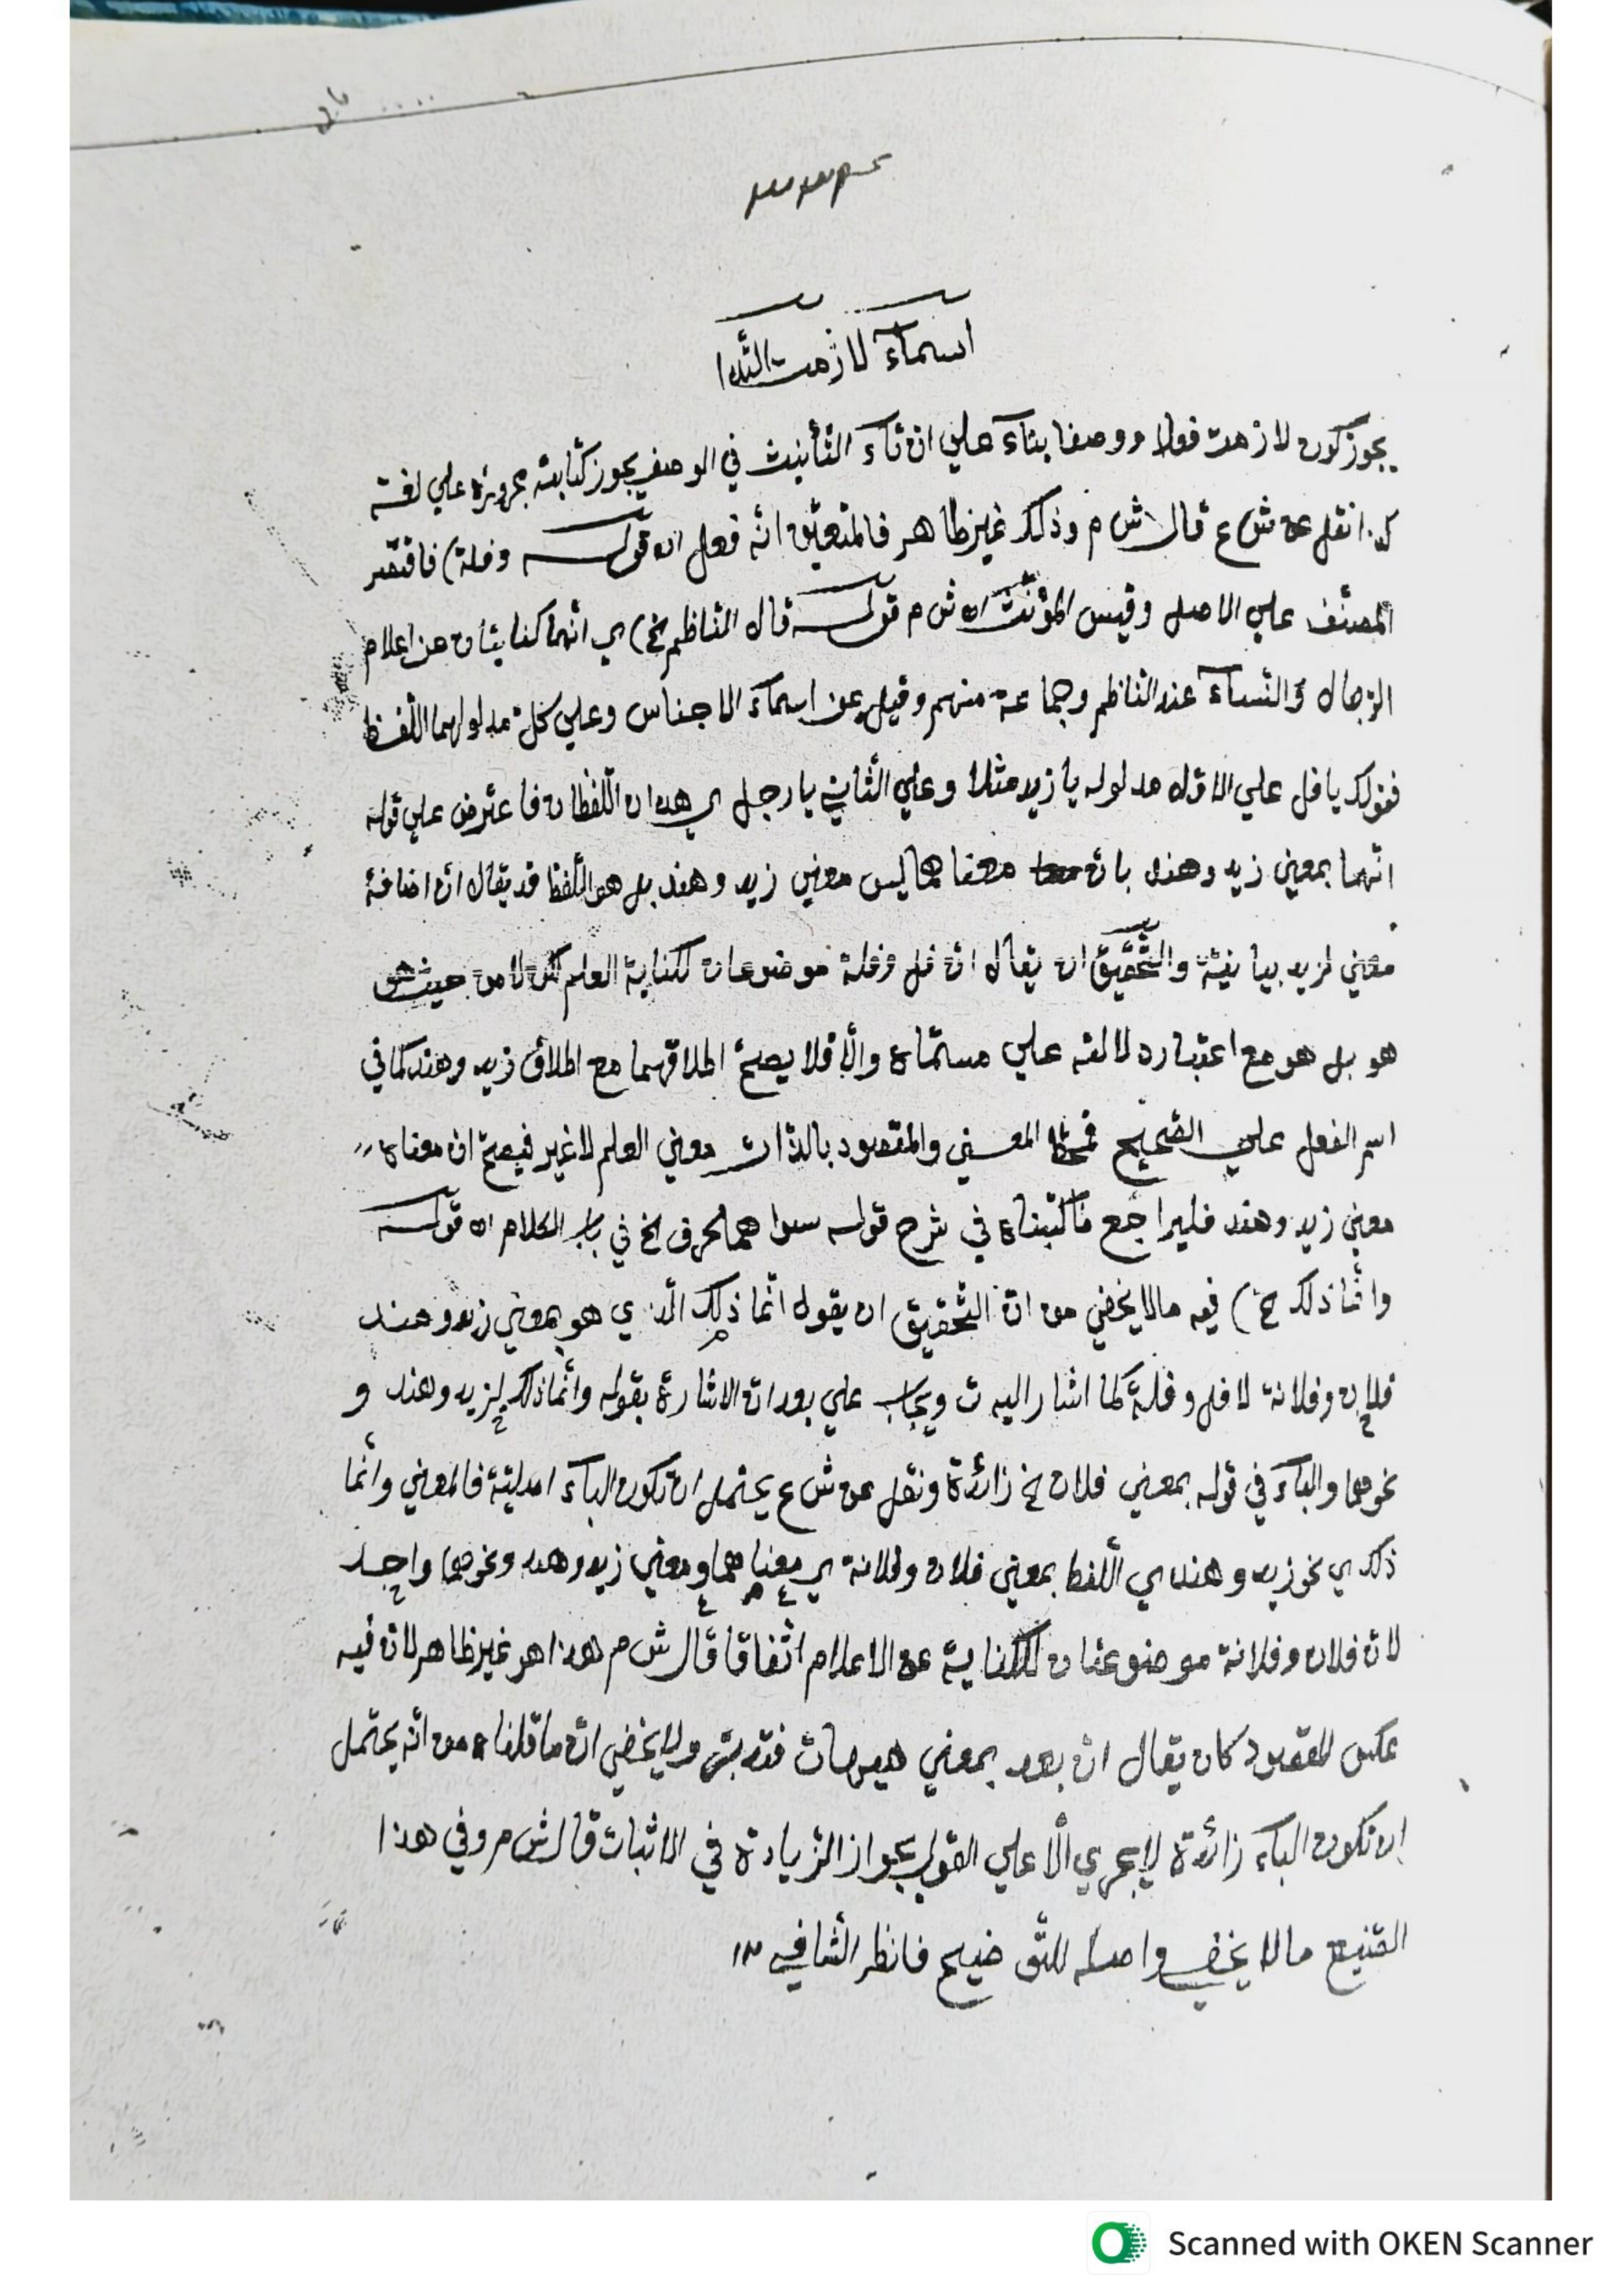 اسمآء لازمت النّدا
يجوز كون لازمت فعلا ووصفا بنآء علي ان تآء التّأنيث في الوصف يجوز كتابته مجرورة علي لغة
نقل عن ش ع قال ش م وذلك غير ظاهر فالمتعيّن انّه فعل اه قوله وفلة) فاقتصر
المصنّف علي الاصل وقيس المؤنّث اه ش م قوله قال النّاظم الخ) اي انّهما كنايتان عن اعلام
الرّجال والنّسآء عند النّاظم وجماعة منهم وقيل عن اسمآء الاجناس وعلي كلّ مدلولهما اللّفظ
فقولك يا فل علي الاوّل مدلوله يا زيد مثلا وعلي الثّاني يا رجل اي هذان اللّفظان فاعترض علي قوله
انّهما بمعني زيد وهند بانّ معناهما ليس معني زيد وهند بل هو اللّفظ قد يقال انّ اضافة
معني لزيد بيانيّة والتّحقيق ان يقال انّ فل وفلة موضوعان لكناية العلم لكن لا من حيث هو
هو بل هو مع اعتبار دلالته علي مسمّاه والّا فلا يصحّ اطلاقهما مع اطلاق زيد وهند كما في
اسم الفعل علي الصّحيح المعني والمقصود بالذّات معني العلم لا غير فيصحّ انّ معناه
معني زيد وهند فليراجع ما كتبناه في شرح قوله سواهما الحرف الخ في باب الكلام اه قوله
وانّما ذلك الخ) فيه ما لا يخفي من انّ التّحقيق ان يقول انّما ذلك الّذي هو بمعني زيد وهند
فلان وفلانة لا فل وفلة كما اشار اليه ت ويجاب علي بعد انّ الاشارة بقوله وانّما ذلك لزيد وهند و
نحوهما والبآء في قوله بمعني فلان الخ زائدة ونقل عن ش ع يحتمل ان تكون البآء اصليّة فالمعني وانّما
ذلك اي نحو زيد وهند اي اللّفظ بمعني فلان وفلانة اي معناهما ومعني زيد وهند ونحوهما واحد
لانّ فلان وفلانة موضوعتان للكناية عن الاعلام اتّفاقا قال ش م هذا هو غير ظاهر لانّ فيه
عكس المقصود كان يقال انّ بعد بمعني هيهات فتدبّر ولا يخفي انّ ما قلناه من انّه يحتمل
ان تكون البآء زائدة لا يجري الّا علي القول بجواز الزّيادة في الاثبات قال ش م وفي هذا
الصّنيع ما لا يخفي واصله للتّوضيح فانظر الشّافي
Scanned with OKEN Scanner